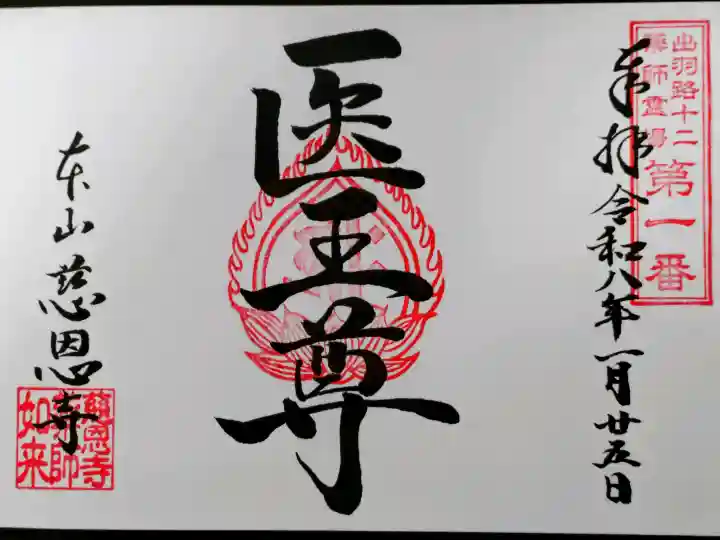 出羽路十二
薬師霊場
第一番
奉拝令和八年一月廿五日
医王尊
本山慈恩寺
慈恩寺
薬師
如来